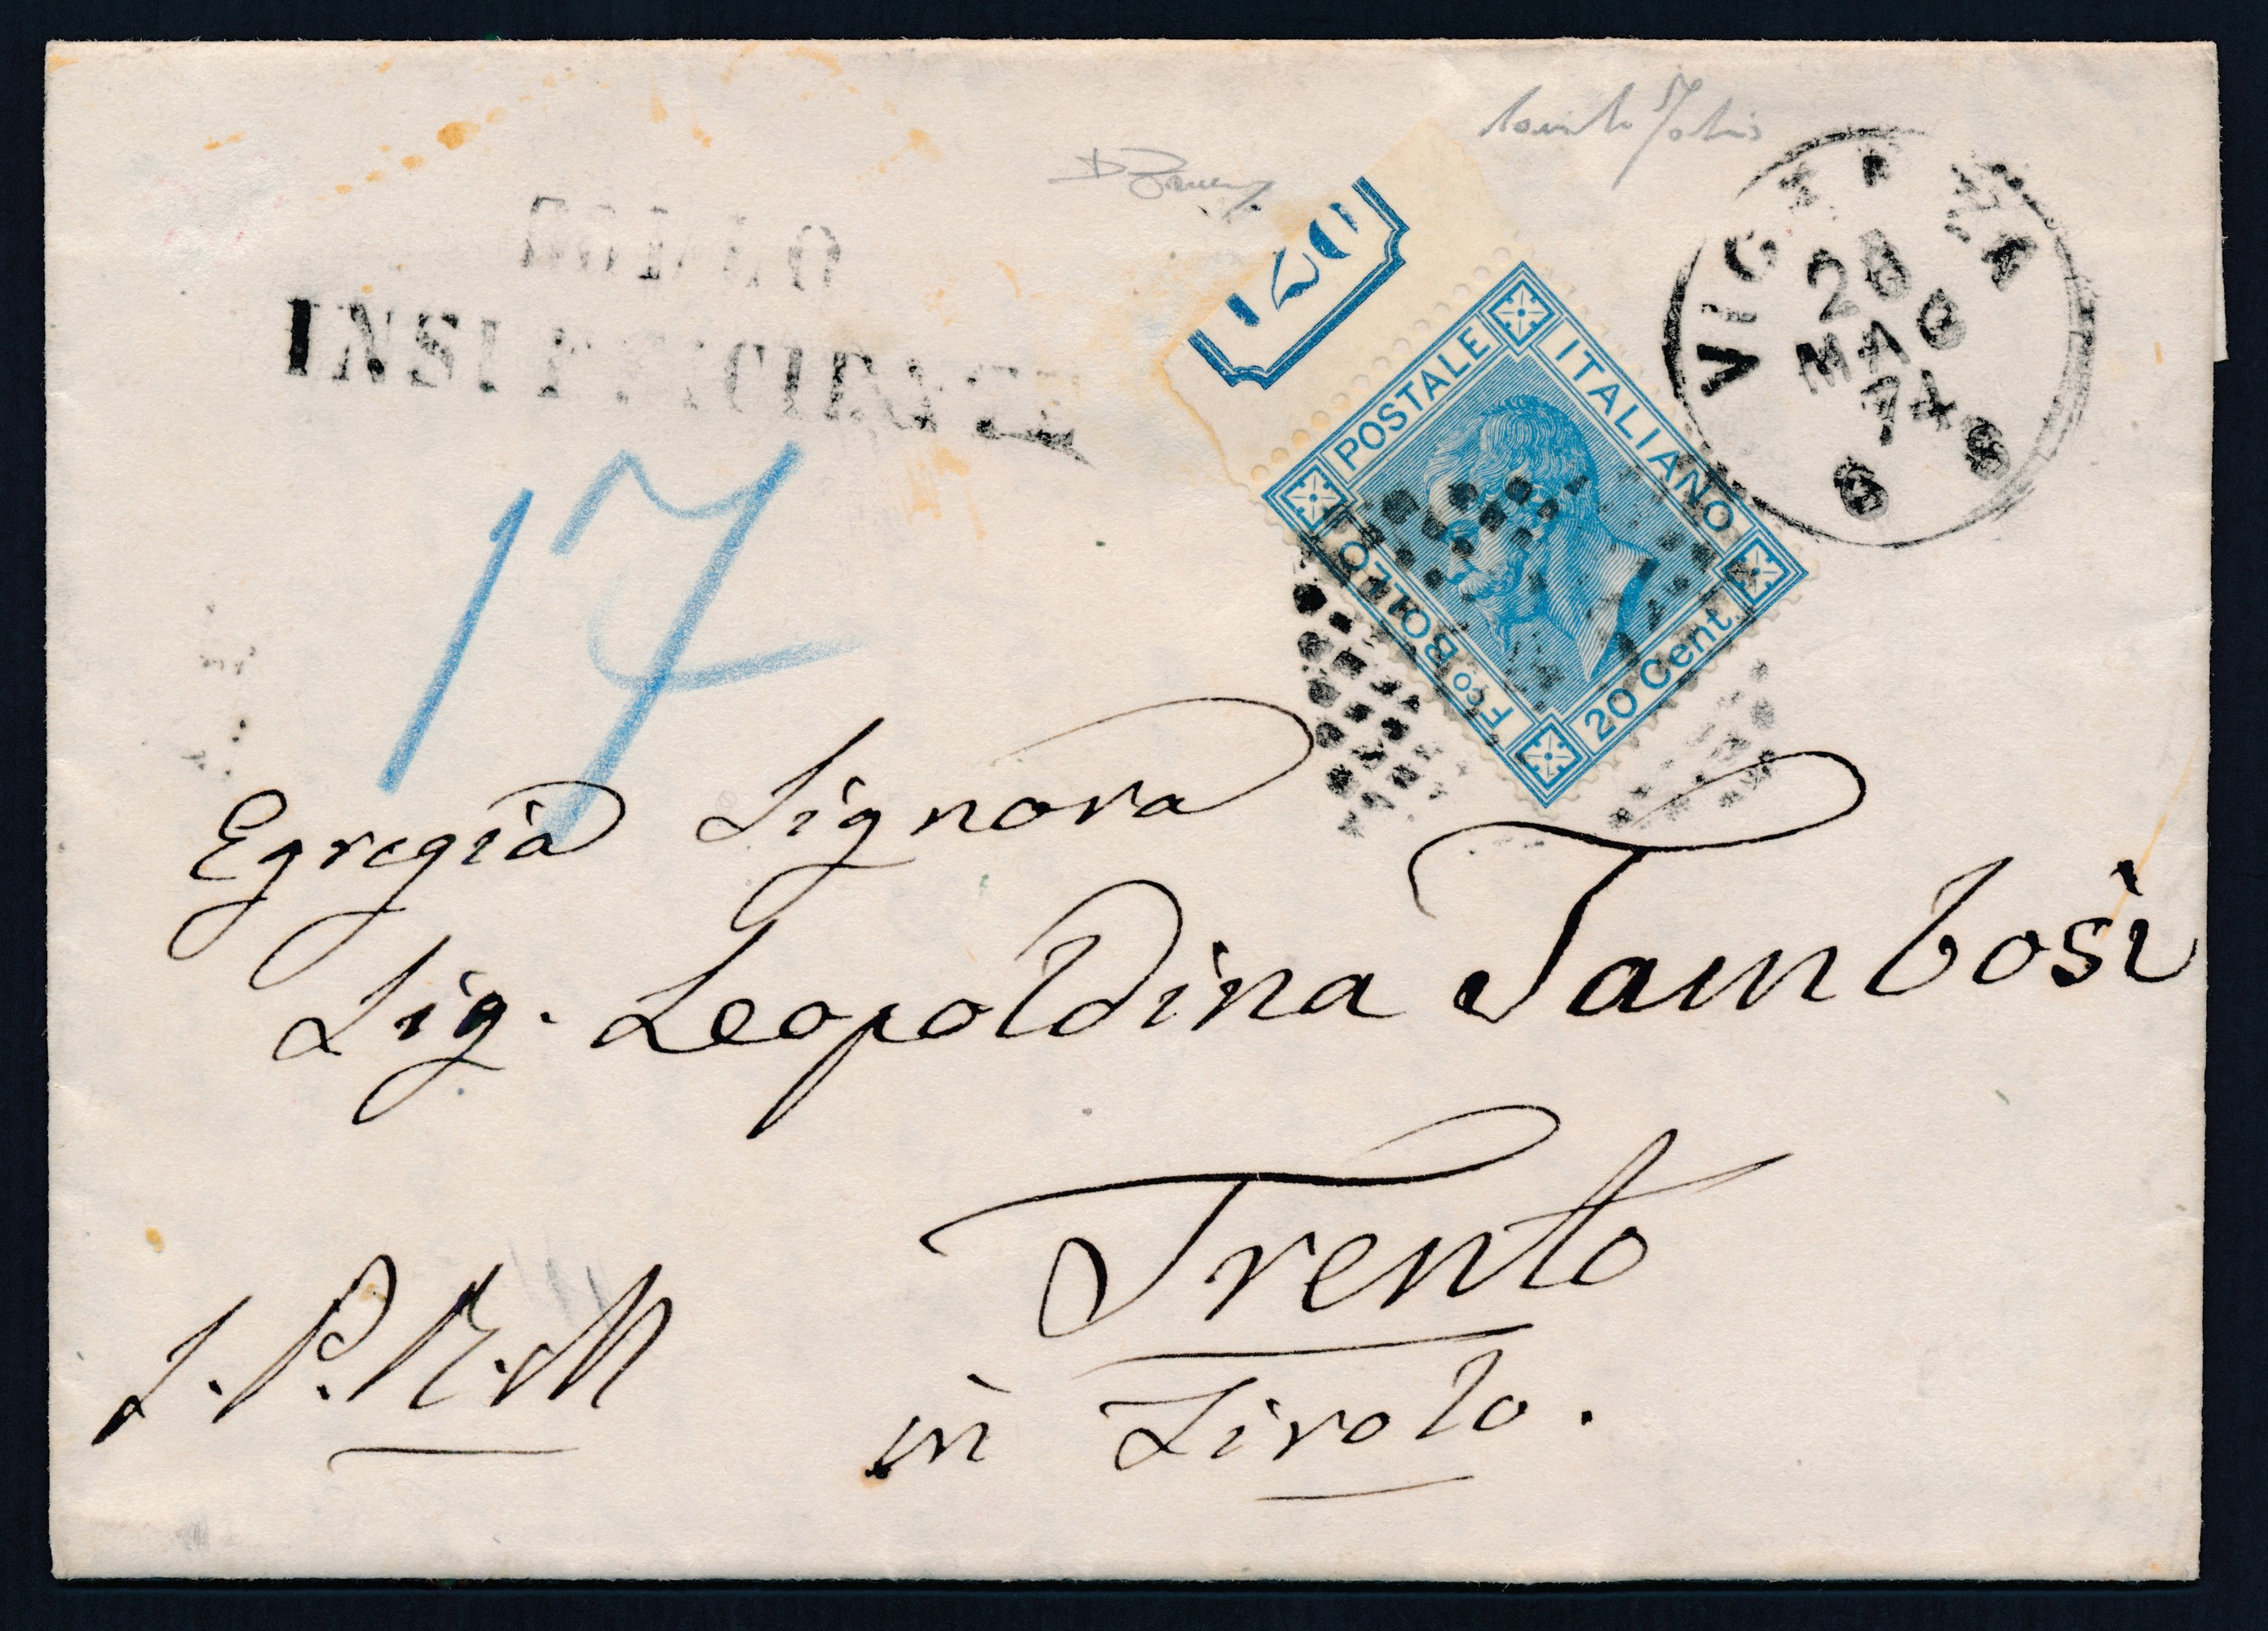 BOLLO
INSUFFICIENTE
17
120
POSTALE
ITALIANO
Fco BOLLO
20 Cent.
28
MAG
74
6 S
Egregia Signora
Sig. Leopoldina Tambosi
Trento
in Tirolo.